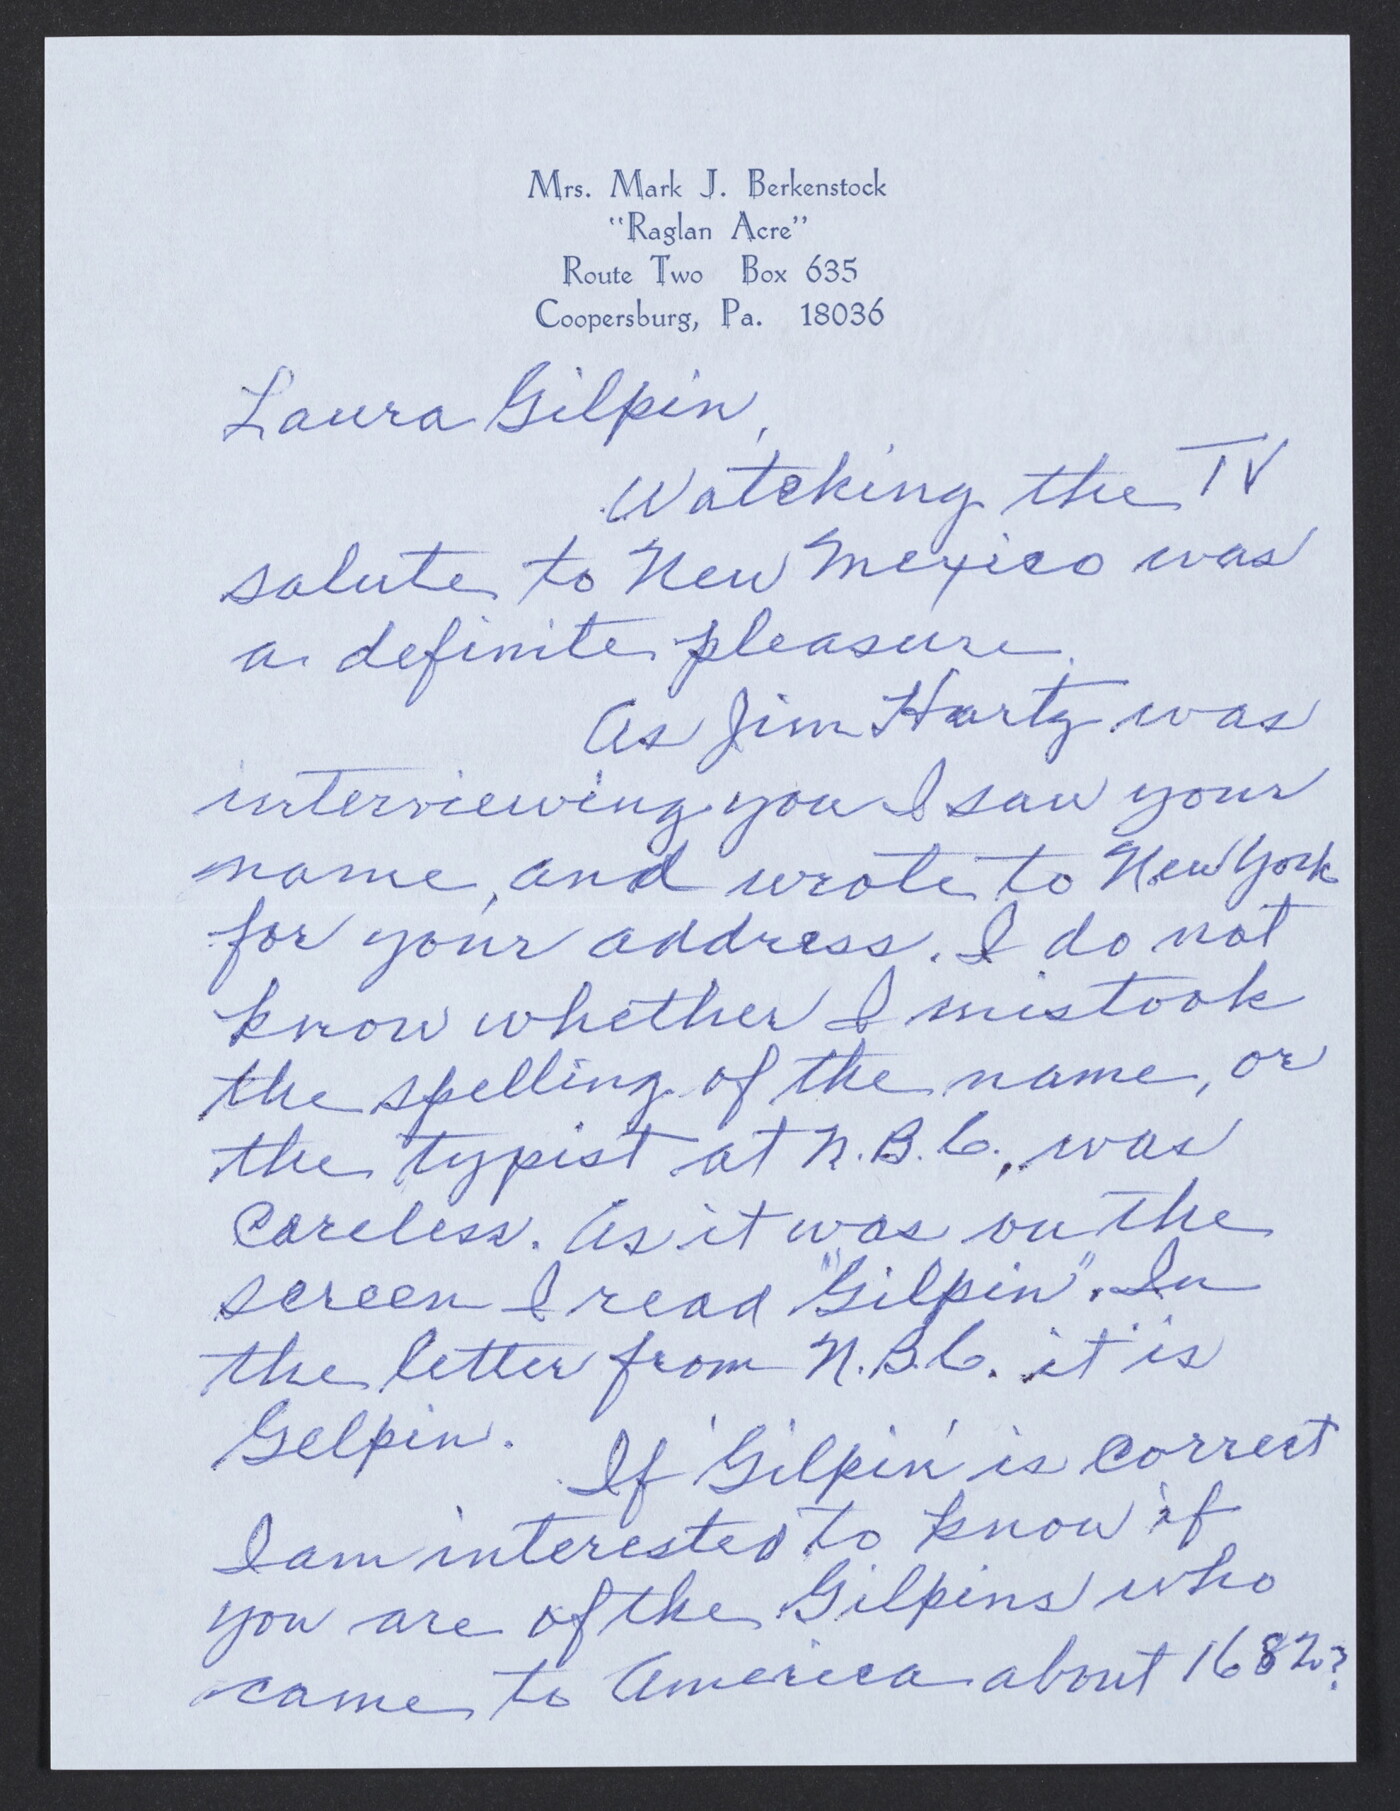 Mrs. Mark J. Berkenstock
"Raglan Acre"
Route Two Box 635
Coopersburg, Pa. 18036
Laura Gilpin,
Watching the TV
salute to New Mexico was
a definite pleasure.
As Jim Hartz was
interviewing you I saw your
name, and wrote to New York
for your address. I do not
know whether I mistook
the spelling of the name, or
the typist at N.B.C., was
careless. As it was on the
screen I read "Gilpin". In
the letter from N.B.C. it is
Gelpin. If 'Gilpin' is correct
I am interested to know if
you are of the Gilpins who
came to America about 1682?